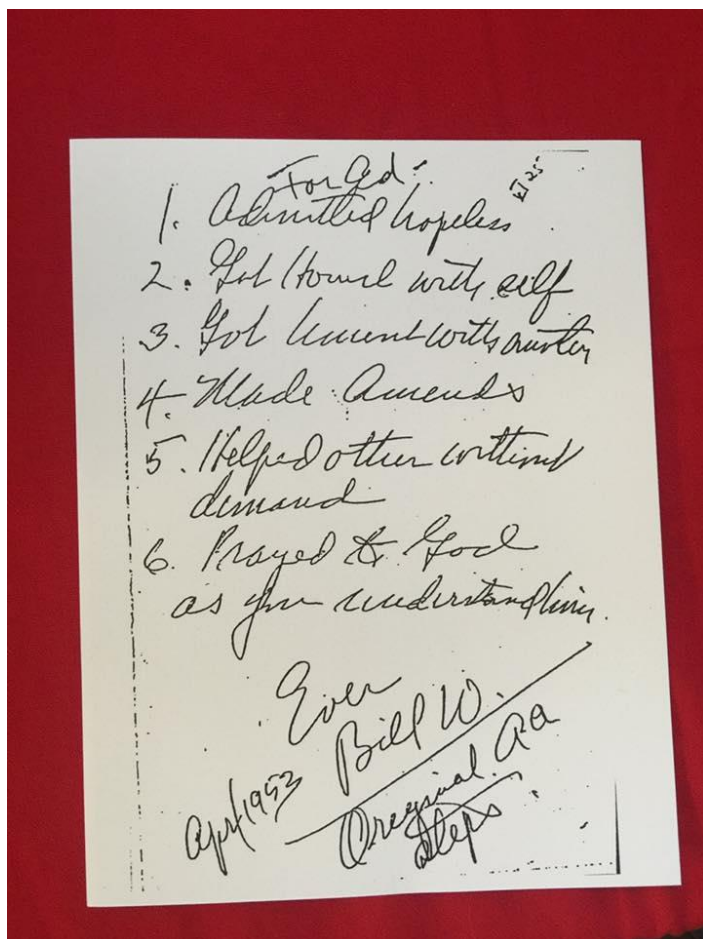 For Ed:
1. Admitted hopeless
2. Got Honest with self
3. Got honest with another
4. Made Amends
5. Helped other without
demand
6. Prayed to God
as you understand him.
Ever
Bill W.
Apr/1953
Original AA
Steps